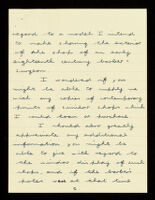 regard to a model I intend
to make showing the exterior
of the shop of an early
eighteenth century barber-
surgeon.
I wondered if you
might be able to supply me
with any copies of contemporary
prints of similar shops which
I could loan or purchase.
I should also greatly
appreciate any additional
information you might be
able to give with regard to
the window display of such
shops and if the barber's
poles were at that time
2